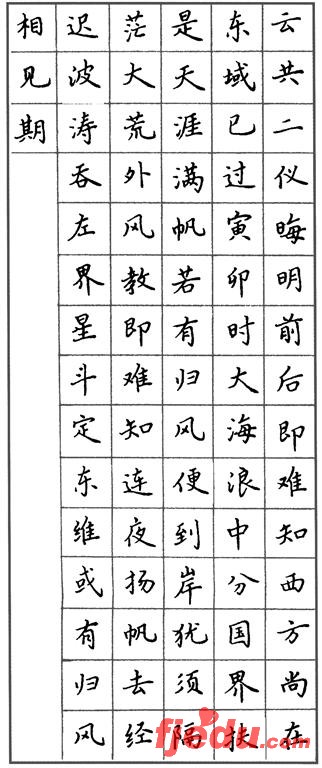 云共二仪晦明前后即难知西方尚在
东域已过寅卯时大海浪中分国界扶
是天涯满帆若有归风便到岸犹须隔
茫大荒外风教即难知连夜扬帆去经
迟波涛吞左界星斗定东维或有归风
相见期
fjedu.com